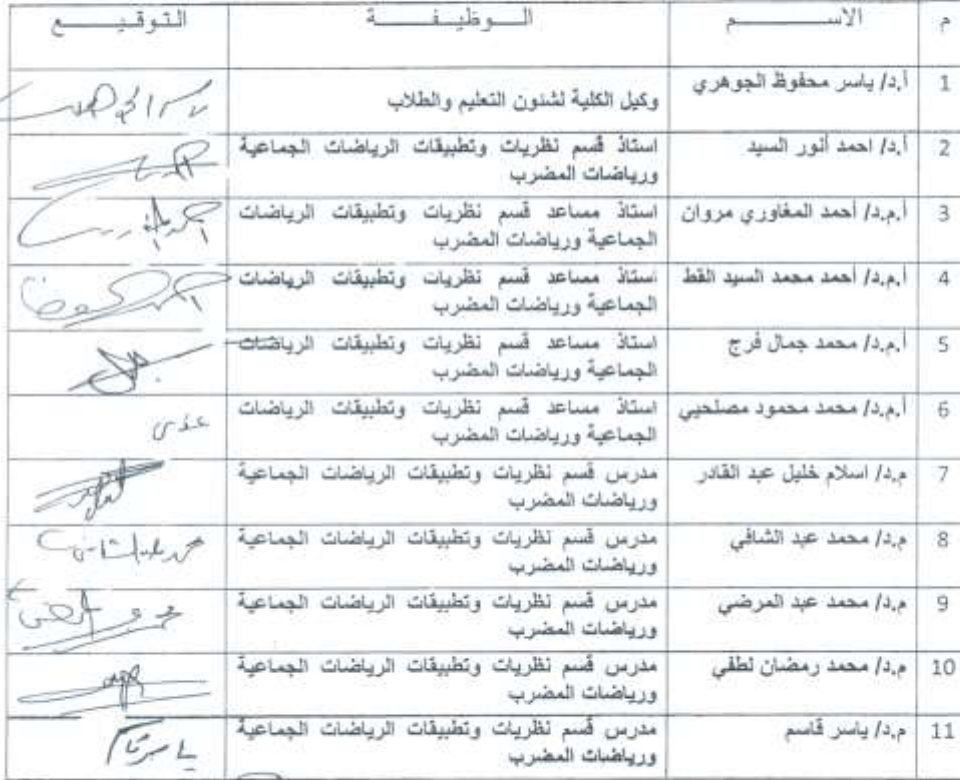 م الاســـــــم الـــوظيـفـــــــة التوقيـــــع
1 أ.د/ ياسر محفوظ الجوهري وكيل الكلية لشئون التعليم والطلاب
2 أ.د/ احمد أنور السيد استاذ قسم نظريات وتطبيقات الرياضات الجماعية
ورياضات المضرب
3 أ.م.د/ أحمد المغاوري مروان استاذ مساعد قسم نظريات وتطبيقات الرياضات
الجماعية ورياضات المضرب
4 أ.م.د/ أحمد محمد السيد القط استاذ مساعد قسم نظريات وتطبيقات الرياضات
الجماعية ورياضات المضرب
5 أ.م.د/ محمد جمال فرج استاذ مساعد قسم نظريات وتطبيقات الرياضات
الجماعية ورياضات المضرب
6 أ.م.د/ محمد محمود مصلحيي استاذ مساعد قسم نظريات وتطبيقات الرياضات
الجماعية ورياضات المضرب
7 م.د/ اسلام خليل عبد القادر مدرس قسم نظريات وتطبيقات الرياضات الجماعية
ورياضات المضرب
8 م.د/ محمد عبد الشافي مدرس قسم نظريات وتطبيقات الرياضات الجماعية
ورياضات المضرب
9 م.د/ محمد عبد المرضي مدرس قسم نظريات وتطبيقات الرياضات الجماعية
ورياضات المضرب
10 م.د/ محمد رمضان لطفي مدرس قسم نظريات وتطبيقات الرياضات الجماعية
ورياضات المضرب
11 م.د/ ياسر قاسم مدرس قسم نظريات وتطبيقات الرياضات الجماعية
ورياضات المضرب